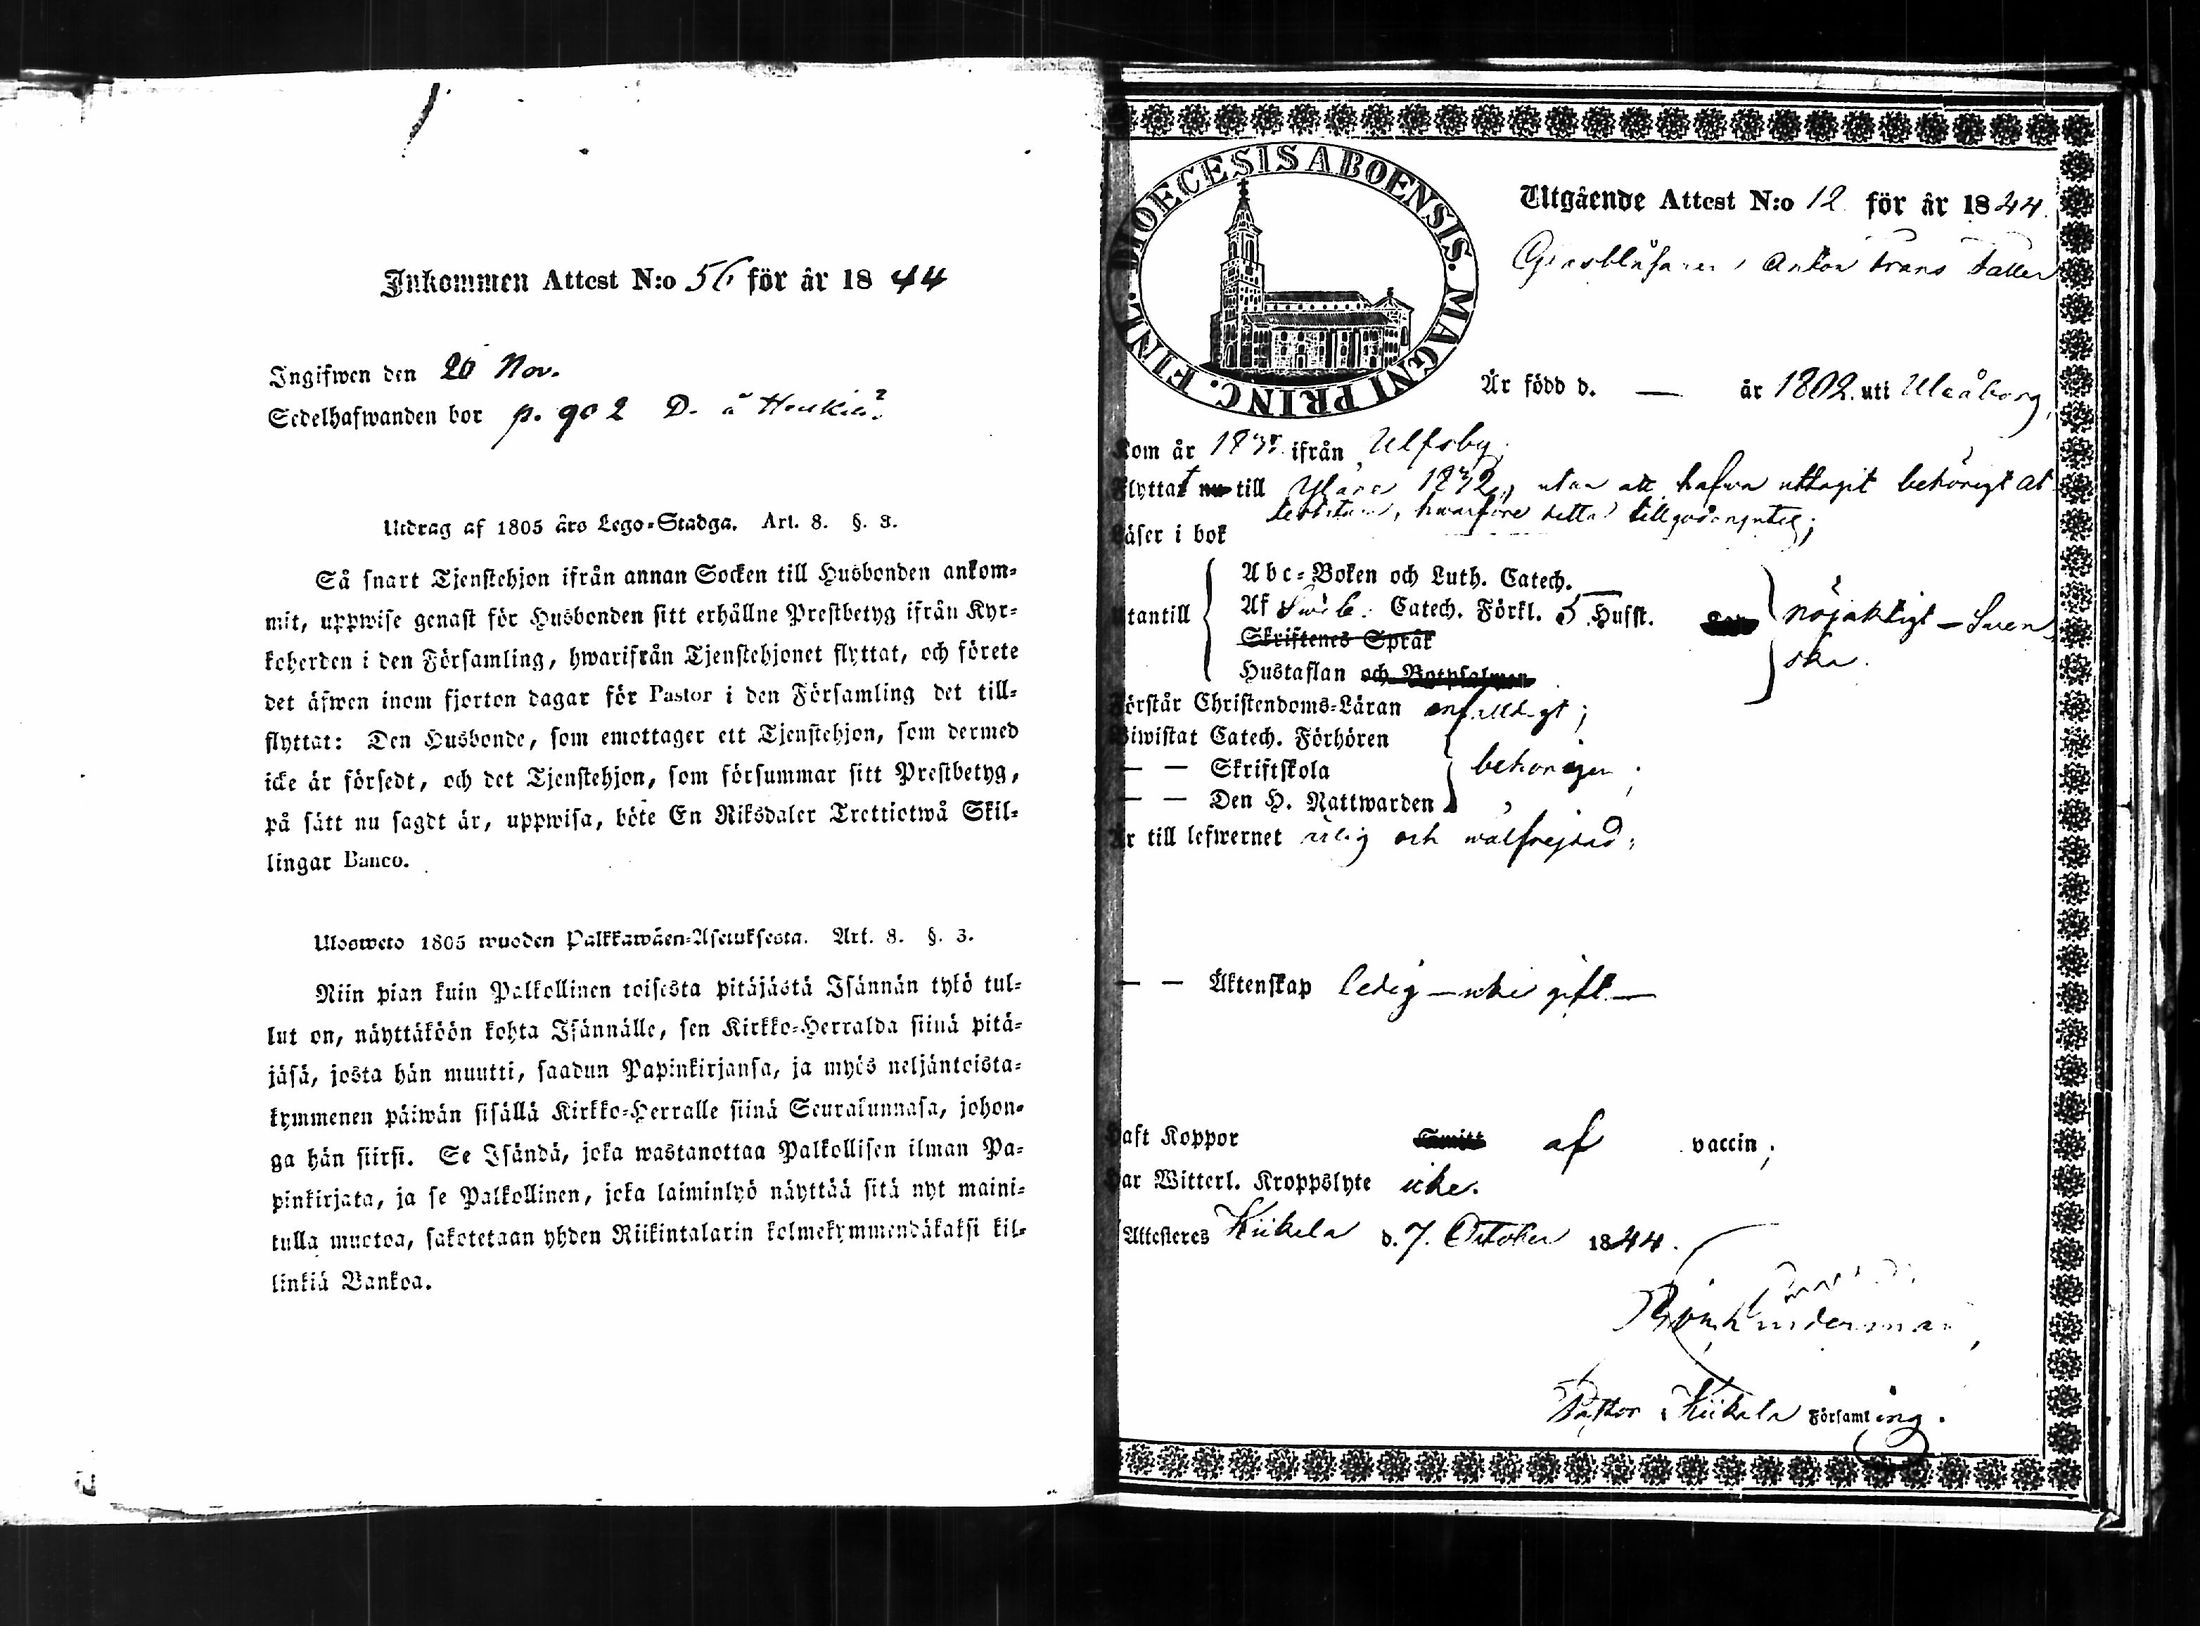 Inkommen Attest N:o 56 för år 1844
Ingifwen den 20 Nov.
Sedelhafwanden bor p. 902 D. å
Utdrag af 1805 års Lego-Stadga. Art. 8. §. 3.
Så snart Tjenstehjon ifrån annan Socken till Husbonden ankom-
mit, uppwise genast för Husbonden sitt erhållne Prestbetyg ifrån Kyr-
koherden i den Församling, hwarifrån Tjenstehjonet flyttat, och förete
det äfwen inom fjorton dagar för Pastor i den Församling det till-
flyttat: Den Husbonde, som emottager ett Tjenstehjon, som dermed
icke är försedt, och det Tjenstehjon, som försummar sitt Prestbetyg,
på sätt nu sagdt är, uppwisa, böte En Riksdaler Trettiotwå Skil-
lingar Banco.
Ulosweto 1805 wuoden Palkkawäen-Asetuksesta. Art. 8. §. 3.
Niin pian kuin Palkollinen toisesta pitäjästä Isännän tykö tul-
lut on, näyttäköön kohta Isännälle, sen Kirkko-Herralda siinä pitä-
jäsä, josta hän muutti, saadun Papinkirjansa, ja myös neljäntoista-
kymmenen päiwän sisällä Kirkko-Herralle siinä Seurakunnasa, johon-
ga hän siirsi. Se Isändä, joka wastanottaa Palkollisen ilman Pa-
pinkirjata, ja se Palkollinen, joka laiminlyö näyttää sitä nyt maini-
tulla muotoa, sakotetaan yhden Riikintalarin kolmekymmendäkaksi kil-
linkiä Bankoa.
DIOECESIS ABOENSIS. MAGNI PRINC. FINL.
Utgående Attest N:o 12 för år 1844.
Glasblåsaren Anton Frans Faller
Är född d. — år 1802. uti Uleåborg,
Kom år ifrån Ulfsby.
Flyttat nu till Yläne 1832, utan att hafva uttagit behörigt at
hwarföre detta
Läser i bok
Utantill
Abc-Boken och Luth. Catech.
Af Sweb. Catech. Förkl. 5 Husst.
Skriftenes Språk
Hustaflan och Botpsalmen
nöjaktigt – Swen
ska.
Förstår Christendoms-Läran enfaldigt;
Biwistat Catech. Förhören
— — Skriftskola behörigen;
— — Den H. Nattwarden
Är till lefwernet ärlig och wälfrejdad;
— — Äktenskap ledig – icke gift —
Haft Koppor Smitt af vaccin;
Har Witterl. Kroppslyte icke.
Attesteres Kiikala d. 7. October 1844.
Pastor i Kiikala Församling.